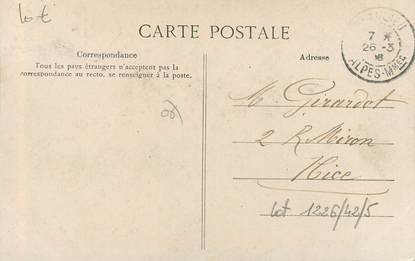 lot
CARTE POSTALE
Correspondance
Tous les pays étrangers n'acceptent pas la
correspondance au recto, se renseigner à la poste.
Adresse
7 *
26 -3
ALPES-MMES
M Girardot
2 R Miron
Nice
lot 1226/42/5